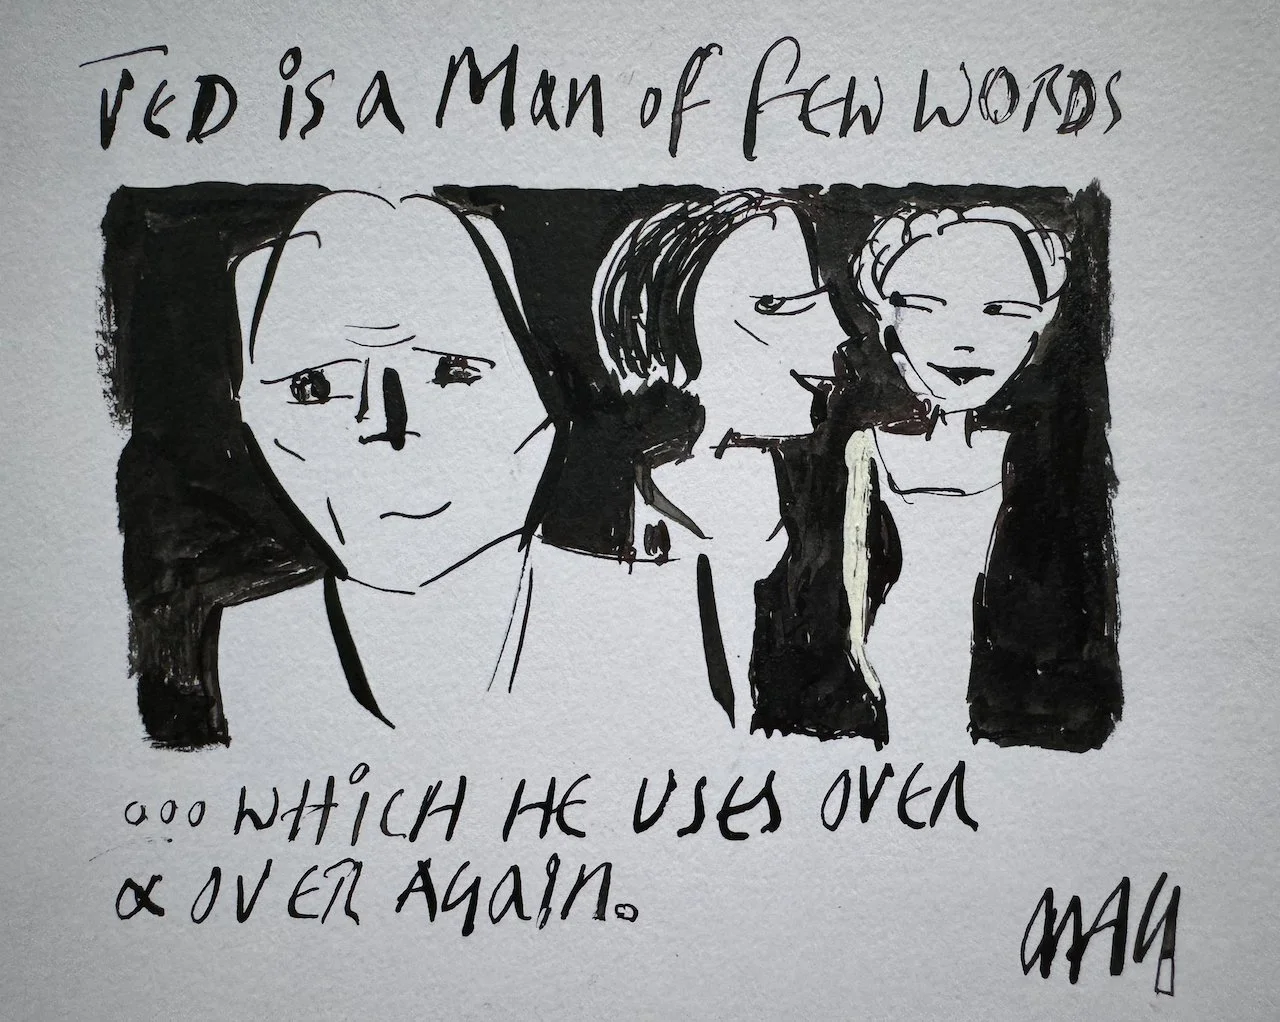 TED is a Man of few WORDS
... WHiCH HE USES OVER
& OVER AgaiN.